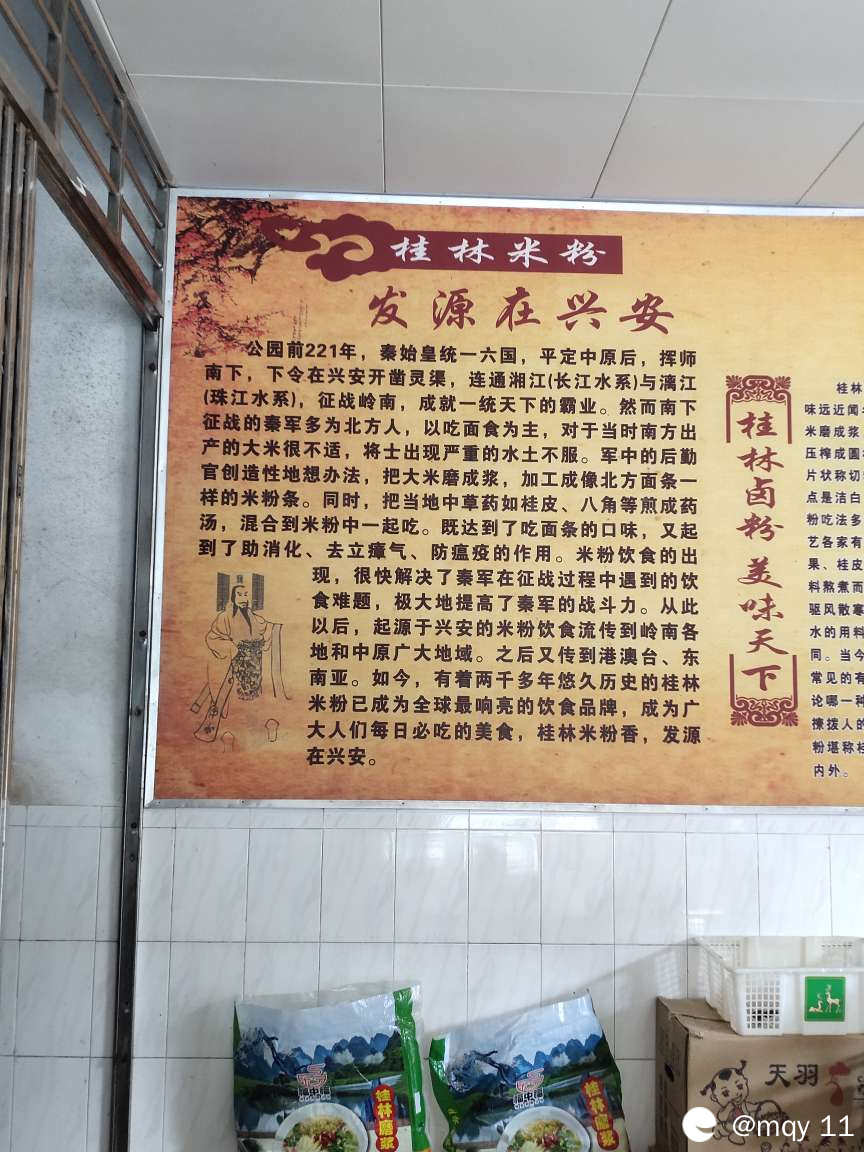 桂林米粉
发源在兴安
公园前221年，秦始皇统一六国，平定中原后，挥师
南下，下令在兴安开凿灵渠，连通湘江(长江水系)与漓江
(珠江水系)，征战岭南，成就一统天下的霸业。然而南下
征战的秦军多为北方人，以吃面食为主，对于当时南方出
产的大米很不适，将士出现严重的水土不服。军中的后勤
官创造性地想办法，把大米磨成浆，加工成像北方面条一
样的米粉条。同时，把当地中草药如桂皮、八角等煎成药
汤，混合到米粉中一起吃。既达到了吃面条的口味，又起
到了助消化、去立瘴气、防瘟疫的作用。米粉饮食的出
现，很快解决了秦军在征战过程中遇到的饮
食难题，极大地提高了秦军的战斗力。从此
以后，起源于兴安的米粉饮食流传到岭南各
地和中原广大地域。之后又传到港澳台、东
南亚。如今，有着两千多年悠久历史的桂林
米粉已成为全球最响亮的饮食品牌，成为广
大人们每日必吃的美食，桂林米粉香，发源
在兴安。
桂林卤粉 美味天下
桂林
味远近闻
米磨成浆
压榨成圆
片状称切
点是洁白
粉吃法多
艺各家有
果、桂皮
料熬煮而
驱风散寒
水的用料
同。当今
常见的有
论哪一种
撩拨人的
粉堪称桂
内外。
桂林磨浆
桂林磨浆
天羽
@mqy 11